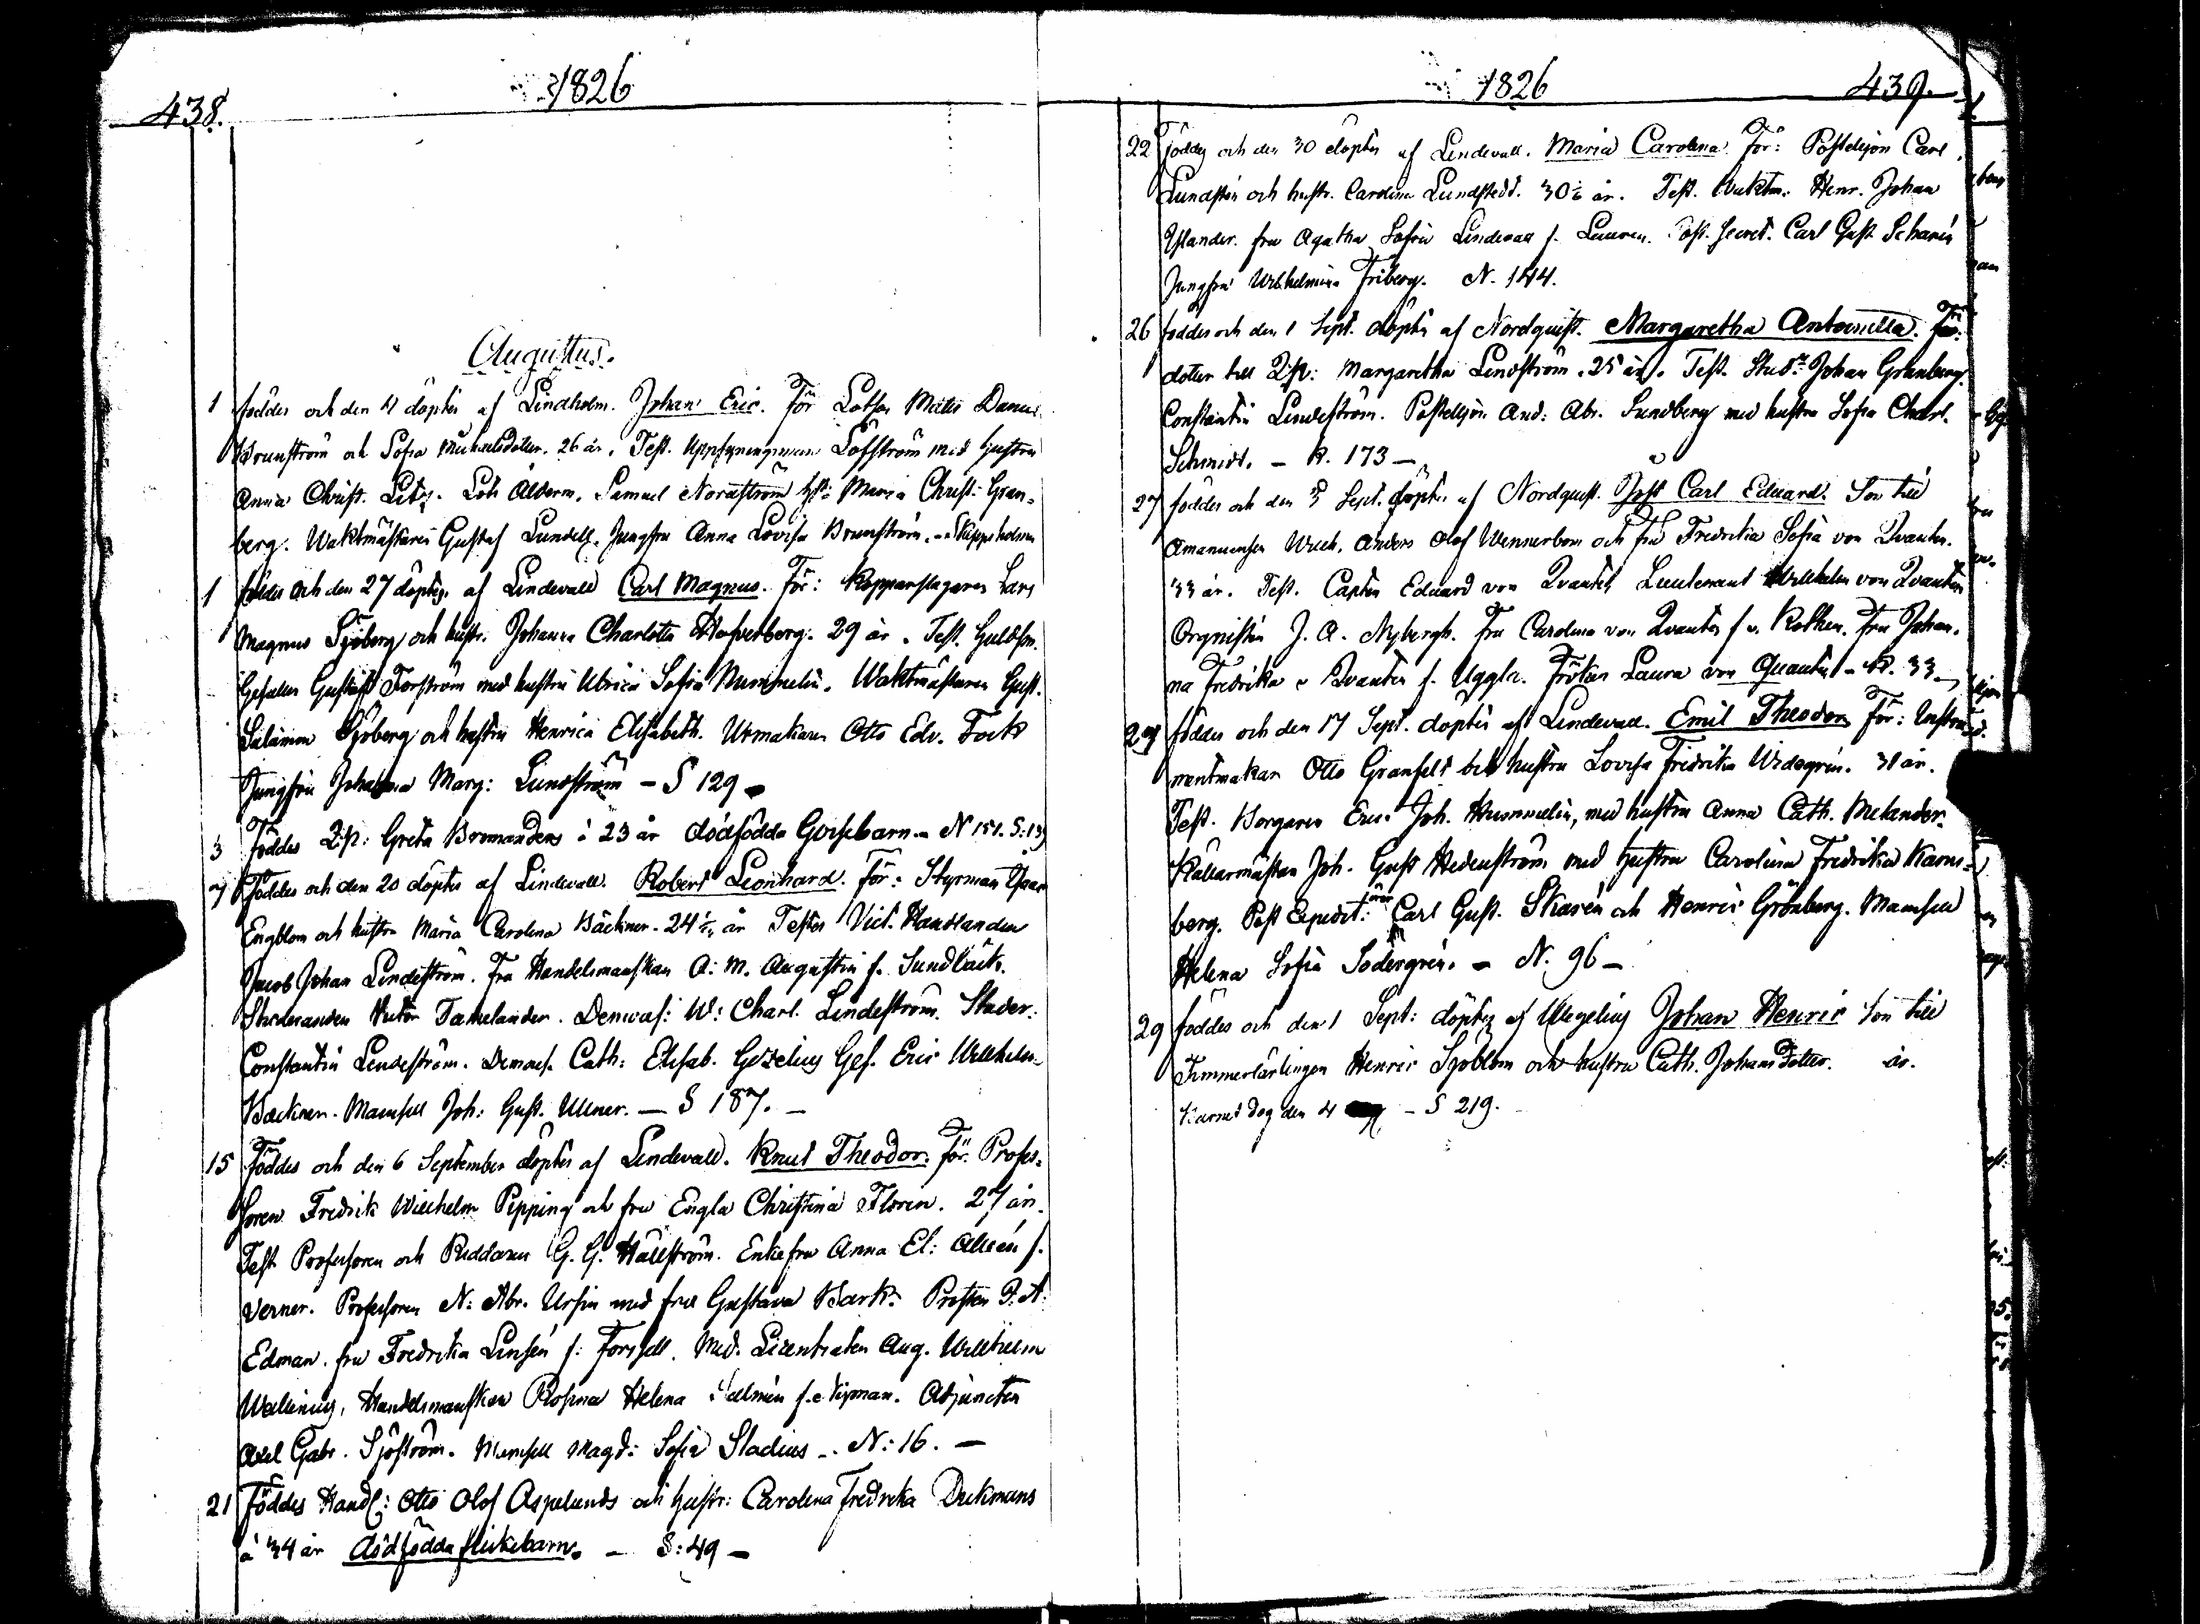 1826
438.
Augustus.
1 föddes och den 4 döptes af Lindholm. Johan Eric. För Lotsen Matts Daniel
Brunström och Sofia Michaelsdotter. 26 år. Test. Uppsyningsman Löfström med hustru
Anna Christ. Lots Ålderm. Samuel Nordström Maria Christ: Gran-
berg. Waktmästaren Gustaf Lundell. Jungfru Anna Lovisa Brunström. Skeppsholmen
1 föddes och den 27 döptes af Lindevall Carl Magnus. För: Kopparslagaren Lars
Magnus Sjöberg och hustr. Johanna Charlotta Hofverberg. 29 år. Test. Guldsm.
Gesallen Gustaf Forsström med hustru Ulrica Sofia Nummelin. Waktmästaren Gust.
Salomon Sjöberg och hustru Henrica Elisabeth. Urmakaren Otto Edv. Fock
Jungfru Johanna Marg: Lundström – S 129 –
3 Föddes Qp: Greta Bromanders à 23 år dödfödda Gossebarn. – N 151. S: 13
7 Föddes och den 20 döptes af Lindevall. Robert Leonhard. För: Styrman Isaac
Engblom och hustru Maria Carolina Bäckner. 24 ½ år Testes Vict. Handlanden
Jacob Johan Lindeström. Fru Handelsmanskan A: M. Augustin f. Sundbäck.
Studeranden Victor Tamelander. Demois: W: Charl. Lindeström. Studer:
Constantin Lindeström. Demois. Cath: Elisab. Gezelius Ges. Eric Willhelm
Backner. Mamsell Joh: Gust. Ullner. – S 187. –
15 Föddes och den 6 September döptes af Lindevall. Knut Theodor. För: Profes-
soren Fredrik Wilhelm Pipping och fru Engla Christina Floren. 27 år.
Test. Professoren och Riddaren G. G. Hällström. Enkefru Anna El: Alléen f.
Verner. Professoren N: Abr. Ursin med fru Gustava Bark. Prosten P. A.
Edman. fru Fredrika Linsén f: Forssell. Med. Licentiaten Aug. Willhelm
Wallenius, Handelsmanskan Rosina Helena f. Nipman. Adjuncten
Axel Gabr. Sjöström. Mamsell Magd: Sofia Stadius –. N: 16. –
21 Föddes Handl: Otto Olof Aspelunds och hustr: Carolina Fredrika Dickmans
à 34 år dödfödda flickebarn. – S: 49 –
1826
439.
22 föddes och den 30 döptes af Lindevall. Maria Carolina För: Postiljon Carl
Lundstén och hustr. Carolina Lundstedt. 30 ½ år. Test. Waktm: Henr. Johan
Ylander. fru Agatha Sofia Lindevall f. Lauren. Post. Secret. Carl Gust. Scharin
Jungfru Wilhelmina Friberg. N. 144.
26 föddes och den 1 Sept. döptes af Nordquist. Margaretha Antoinetta. För:
dotter till Qp: Margaretha Lindström. 25 år. Test. Stud: Johan Granberg.
Constantin Lindeström. Postiljon And: Abr. Sundberg med hustru Sofia Charl.
Schmidt. – K. 173 –
27 föddes och den 3 Sept. döptes af Nordquist. Jost Carl Eduard. Son till
Amanuensen Anders Olof Wennerbom och fru Fredrika Sofia von Qvanten.
33 år. Test. Capten Eduard von Qvanten Lieutenant Willhelm von Qvanten
Organisten J. A. Nybergh. Fru Carolina von Qvanten f v. Rothen. Fru Johan-
na Fredrika v Qvanten f. Uggla. Fröken Laura von Quanten – K. 33
27 föddes och den 17 Sept. döptes af Lindevall. Emil Theodor För: Instru-
mentmakar Otto Granfelt och hustru Lovisa Fredrika Widegrén. 31 år.
Test. Borgaren Eric Joh. Nummelin, med hustru Anna Cath. Melander.
Källarmästar Joh. Gust Hedenström med hustru Carolina Fredrika Karns-
berg. Post Expedit: örer Carl Gust. Skarén och Henric Grönberg. Mamsell
Helena Sofia Södergrén. – N. 96 –
29 föddes och den 1 Sept: döptes af Wegelius Johan Henric Son till
Timmerlärlingen Henric Sjöblom och hustru Cath. Johansdotter. år.
Barnet dog den 4 – S 219.